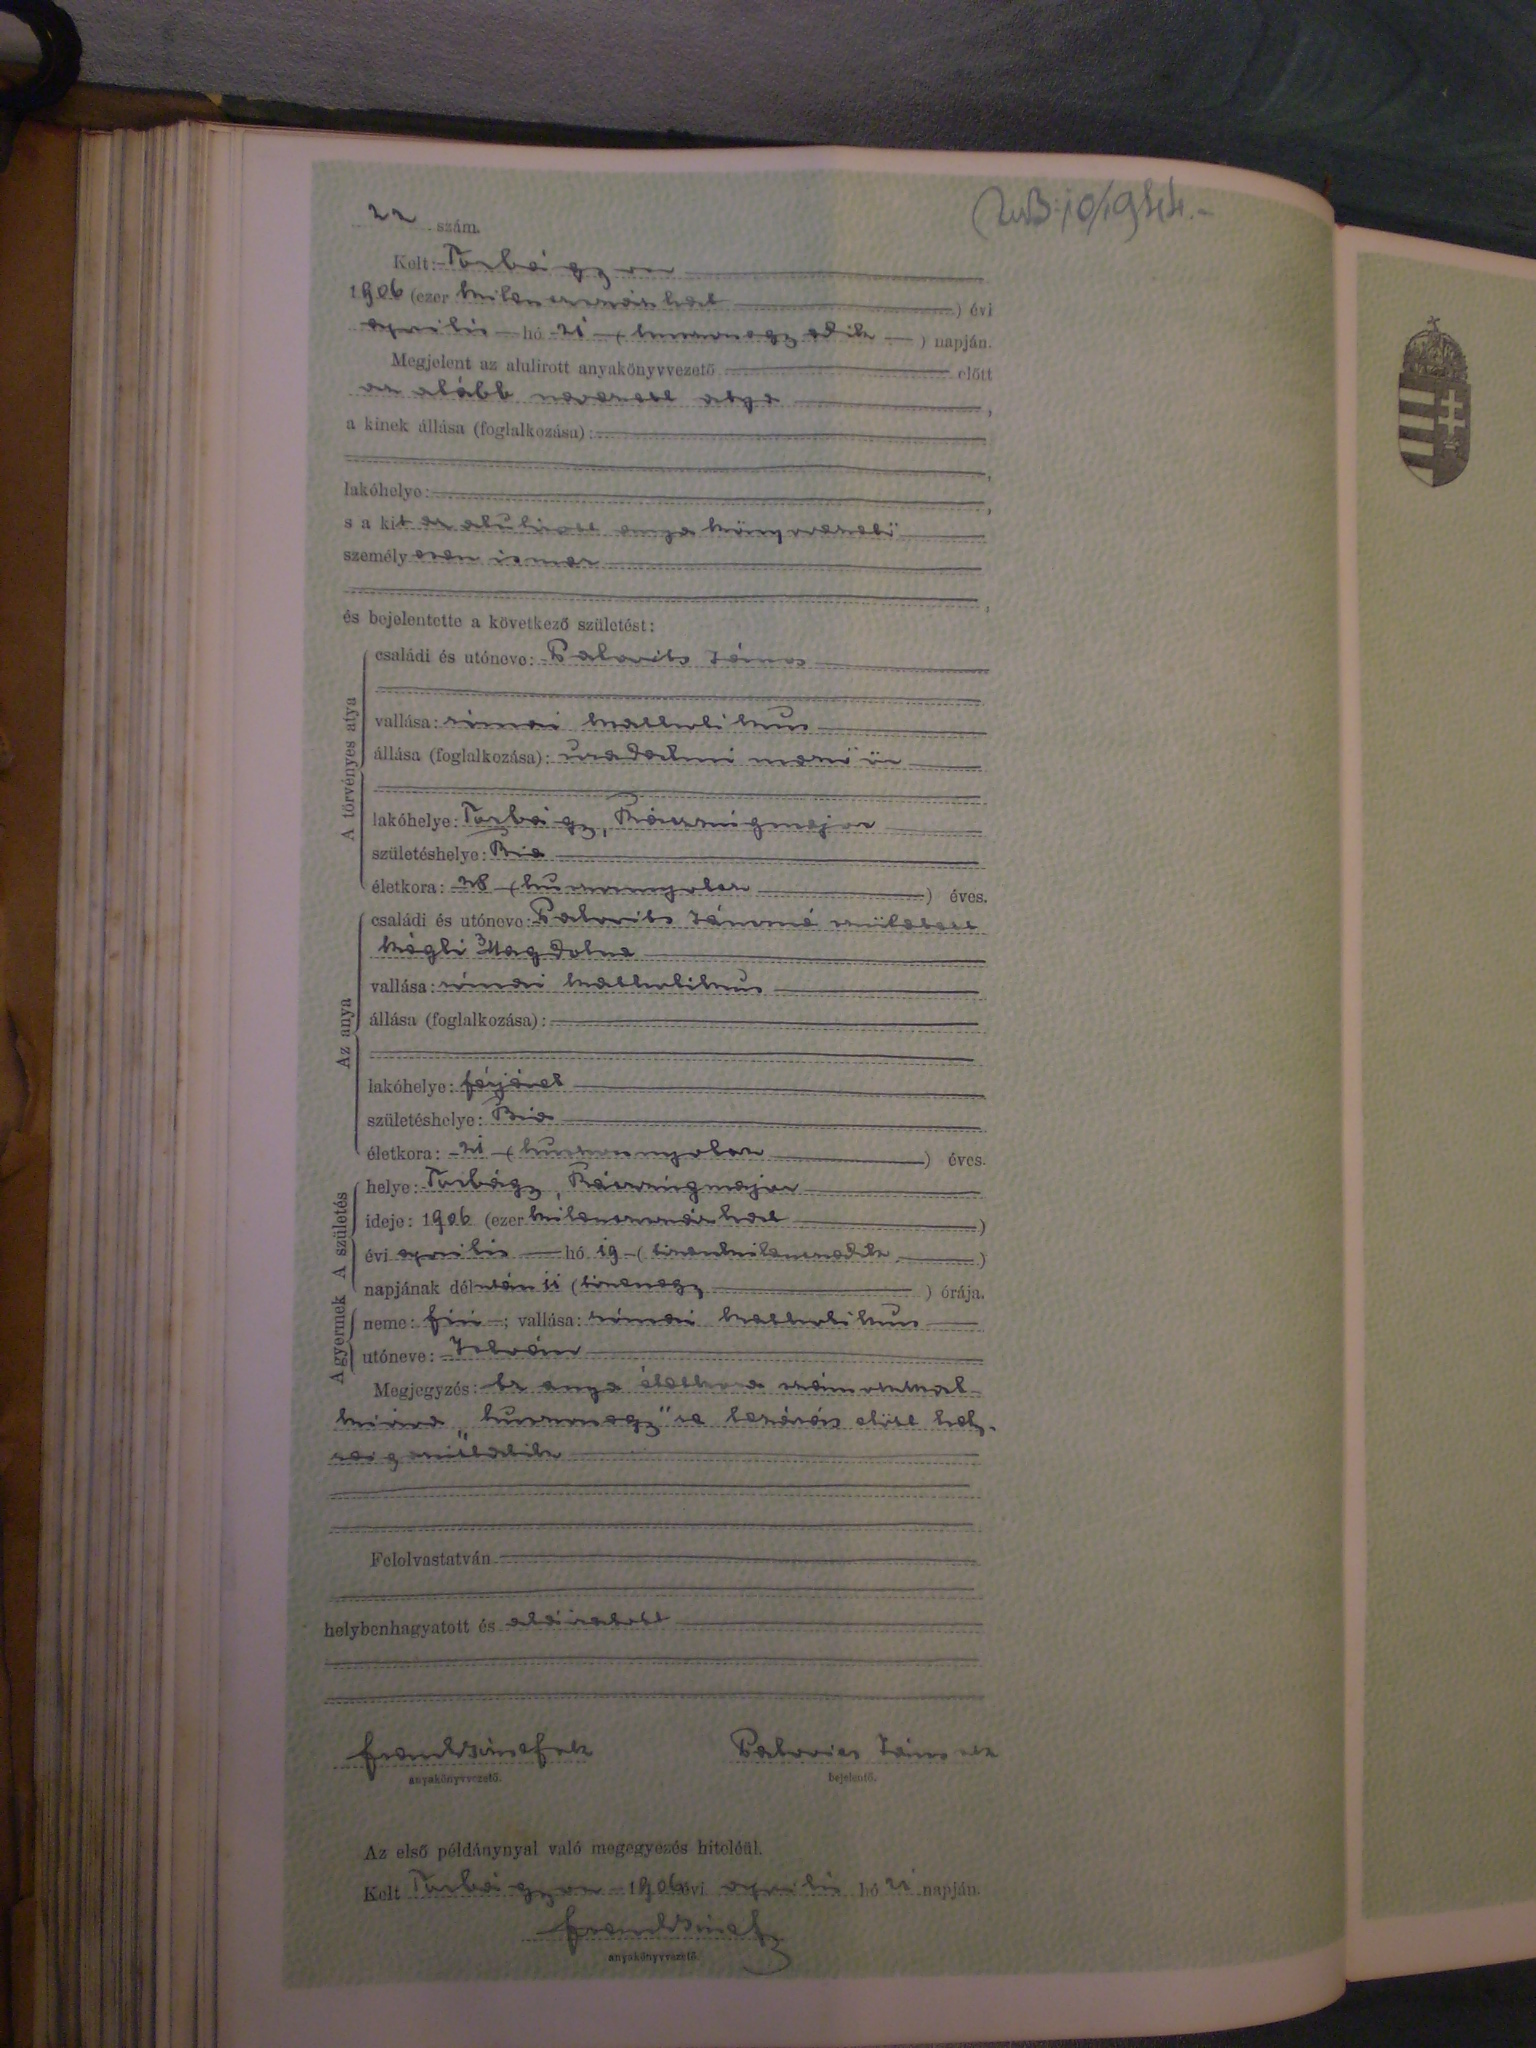 22 szám.
Kelt: Torbágyon
1906 (ezer kilenczszázhat) évi
április hó 21 (huszonegyedik) napján.
Megjelent az alulirott anyakönyvvezető előtt
az alább nevezett atya,
a kinek állása (foglalkozása):
lakóhelye:
s a kit az alulirott anyakönyvvezető
személyesen ismer
és bejelentette a következő születést:
A törvényes atya
családi és utóneve: Palovits János
vallása: római katholikus
állása (foglalkozása): uradalmi
lakóhelye: Torbágy,
születéshelye: Bia
életkora: 28 (huszonnyolcz) éves.
Az anya
családi és utóneve: Palovits Jánosné született
Kégli Magdolna
vallása: római katholikus
állása (foglalkozása):
lakóhelye: férjével
születéshelye: Bia
életkora: 21 (huszonnyolcz) éves.
A születés
helye: Torbágy,
ideje: 1906 (ezer kilenczszázhat)
évi április hó 19 (tizenkilenczedik)
napjának délután 11 (tizenegy) órája.
A gyermek
neme: fiú; vallása: római katholikus
utóneve: István
Megjegyzés: Az anya életkora számokkal
kiírva „huszonegy"re lezárás előtt hely-
Felolvastatván
helybenhagyatott és aláiratott
anyakönyvvezető. Palovics János
bejelentő.
Az első példánynyal való megegyezés hiteléül.
Kelt Torbágyon 1906 évi április hó 21 napján.
anyakönyvvezető.